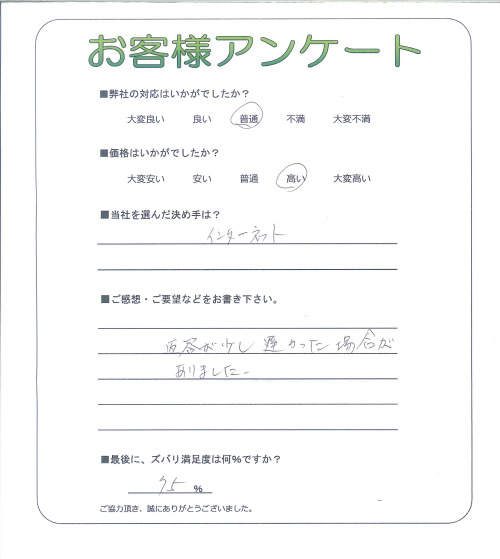 お客様アンケート
■弊社の対応はいかがでしたか？
大変良い 良い 普通 不満 大変不満
■価格はいかがでしたか？
大変安い 安い 普通 高い 大変高い
■当社を選んだ決め手は？
インターネット
■ご感想・ご要望などをお書き下さい。
返答が少し遅かった場合が
ありました。
■最後に、ズバリ満足度は何％ですか？
75 ％
ご協力頂き、誠にありがとうございました。